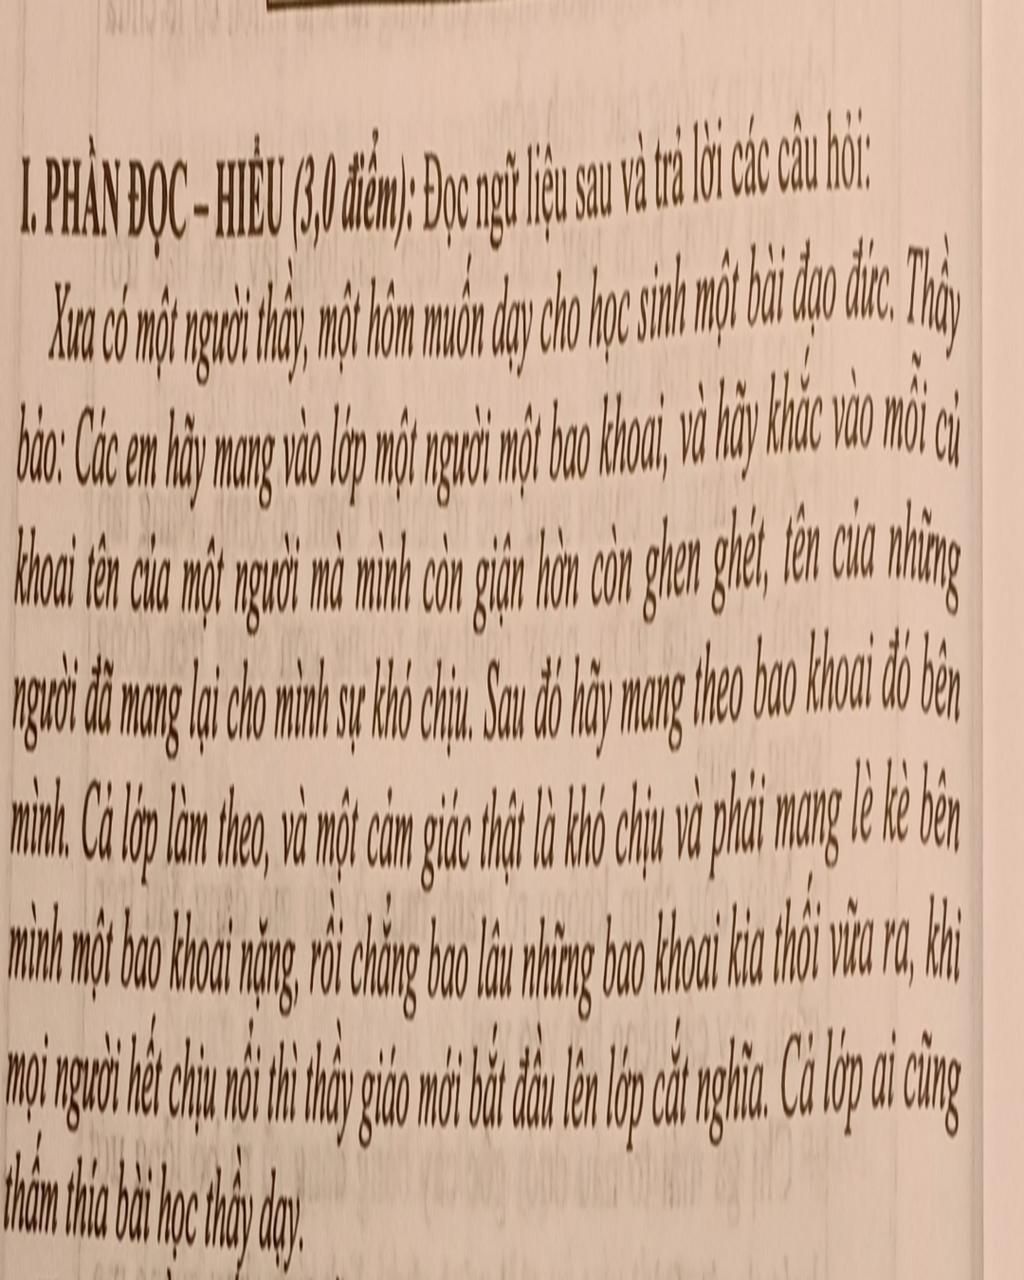 I. PHẦN ĐỌC – HIỂU (3,0 điểm): Đọc ngữ liệu sau và trả lời các câu hỏi:
Xưa có một người thầy, một hôm muốn dạy cho học sinh một bài đạo đức. Thầy
bảo: Các em hãy mang vào lớp một người một bao khoai, và hãy khắc vào mỗi củ
khoai tên của một người mà mình còn giận hờn còn ghen ghét, tên của những
người đã mang lại cho mình sự khó chịu. Sau đó hãy mang theo bao khoai đó bên
mình. Cả lớp làm theo, và một cảm giác thật là khó chịu và phải mang lè kè bên
mình một bao khoai nặng, rồi chẳng bao lâu những bao khoai kia thối vữa ra, khi
mọi người hết chịu nổi thì thầy giáo mới bắt đầu lên lớp cắt nghĩa. Cả lớp ai cũng
thấm thía bài học thầy dạy.